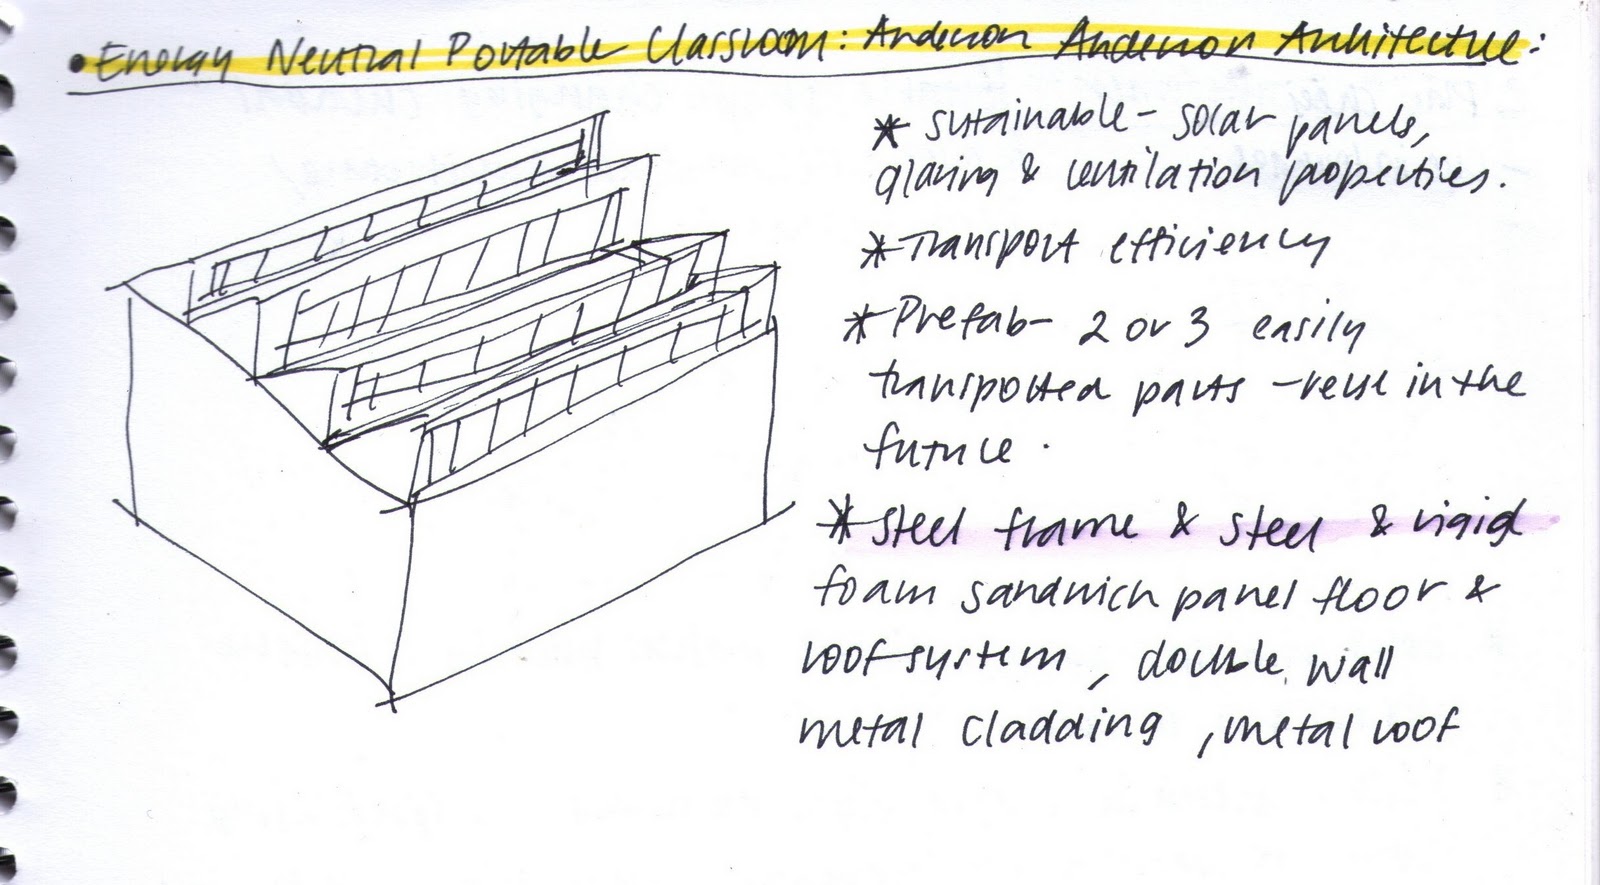 • Energy Neutral Portable Classroom: Anderson Anderson Architecture:
* sustainable - solar panels,
glazing & ventilation properties.
* Transport efficiency
* Prefab - 2 or 3 easily
transported parts - reuse in the
future.
* steel frame & steel & rigid
foam sandwich panel floor &
roof system, double wall
metal cladding, metal roof